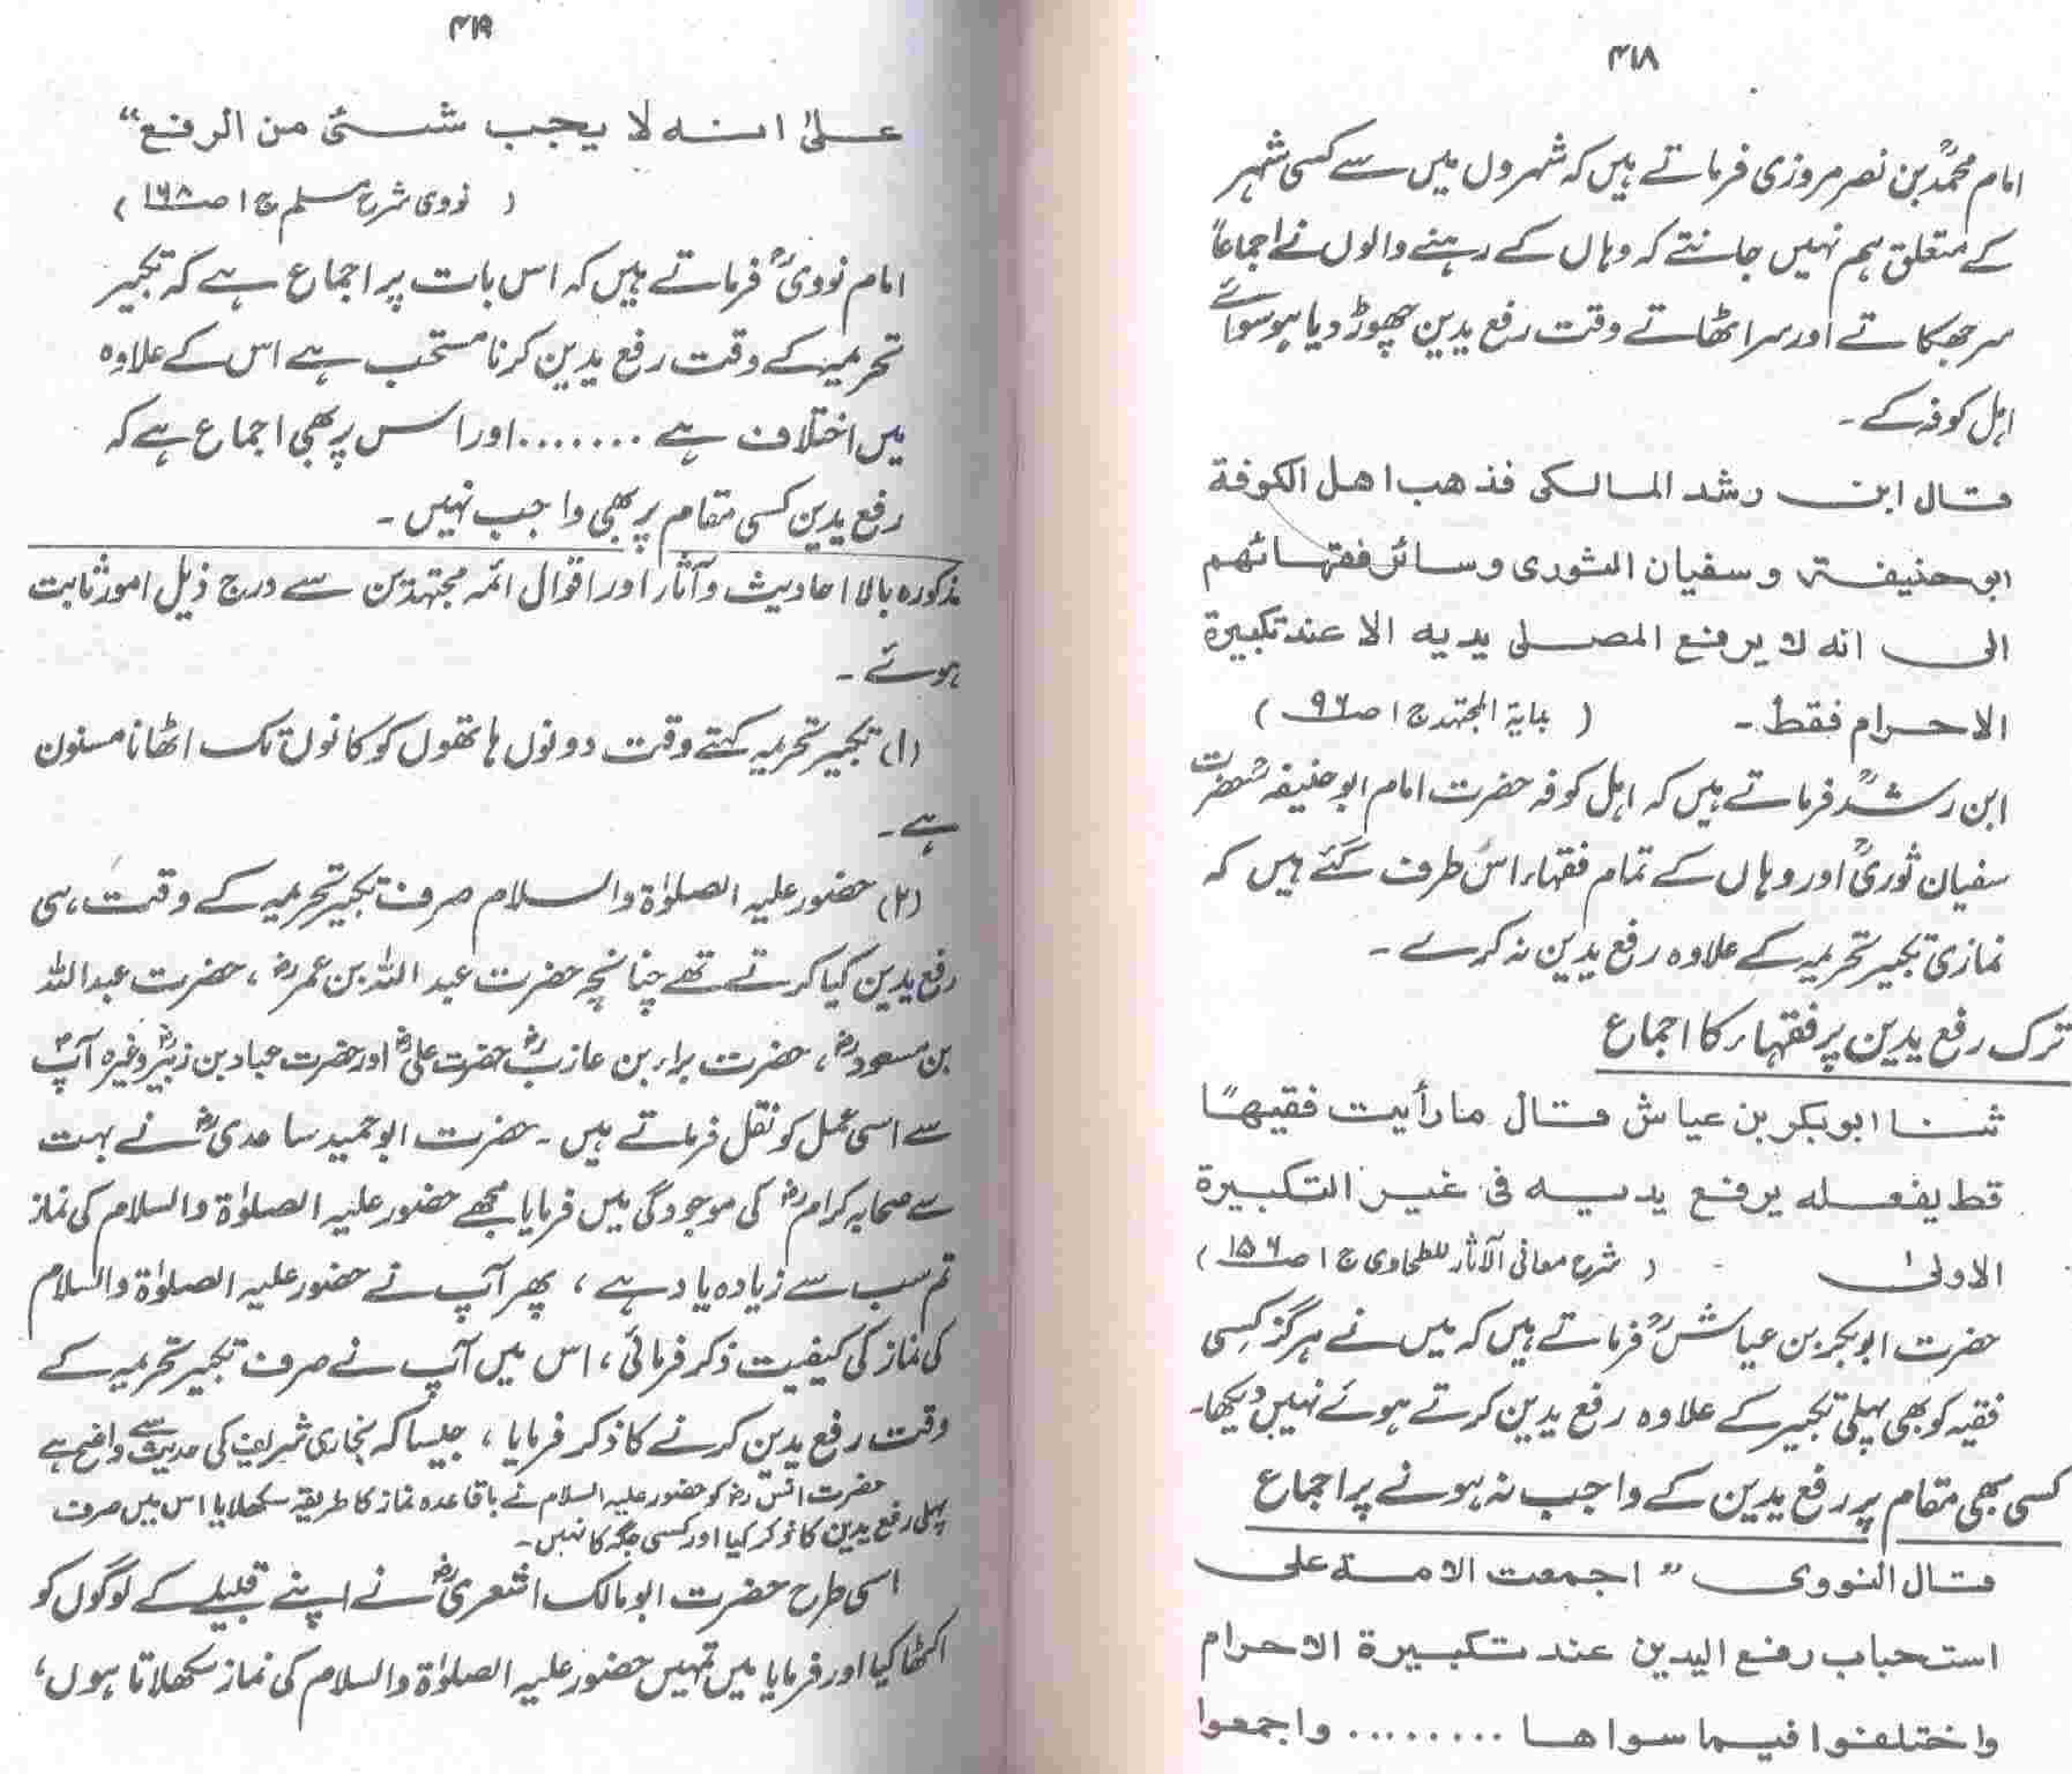 ۴۱۸
امام محمدؒ بن نصر مروزی فرماتے ہیں کہ شہروں میں سے کسی شہر
کے متعلق ہم نہیں جانتے کہ وہاں کے رہنے والوں نے اجماعاً
سر جھکاتے اور سر اٹھاتے وقت رفع یدین چھوڑ دیا ہو سوائے
اہل کوفہ کے۔
قال ابن رشد المالکی فذھب اھل الکوفة
ابو حنیفة و سفیان الثوری و سائر فقھائھم
الی انه لا یرفع المصلی یدیه الا عند تکبیرة
الاحرام فقط۔ ( بدایة المجتھد ج ۱ ص ۹۶ )
ابن رشدؒ فرماتے ہیں کہ اہل کوفہ حضرت امام ابو حنیفہؒ حضرت
سفیان ثوریؒ اور وہاں کے تمام فقہاء اس طرف گئے ہیں کہ
نمازی تکبیر تحریمہ کے علاوہ رفع یدین نہ کرے۔
ترک رفع یدین پر فقہاء کا اجماع
ثنا ابوبکر بن عیاش قال ما رأیت فقیھًا
قط یفعله یرفع یدیه فی غیر التکبیرة
الاولیٰ ( شرح معانی الآثار للطحاوی ج ۱ ص ۱۵۶ )
حضرت ابوبکر بن عیاشؒ فرماتے ہیں کہ میں نے ہرگز کسی
فقیہ کو بھی پہلی تکبیر کے علاوہ رفع یدین کرتے ہوئے نہیں دیکھا۔
کسی بھی مقام پر رفع یدین کے واجب نہ ہونے پر اجماع
قال النووی ” اجمعت الامة علی
استحباب رفع الیدین عند تکبیرة الاحرام
واختلفوا فیما سواھا ........ واجمعوا
۴۱۹
علیٰ انه لا یجب شئ من الرفع“
( نووی شرح مسلم ج ۱ ص ۱۶۸ )
امام نوویؒ فرماتے ہیں کہ اس بات پر اجماع ہے کہ تکبیر
تحریمہ کے وقت رفع یدین کرنا مستحب ہے اس کے علاوہ
میں اختلاف ہے ....... اور اس پر بھی اجماع ہے کہ
رفع یدین کسی مقام پر بھی واجب نہیں۔
مذکورہ بالا احادیث وآثار اور اقوال ائمہ مجتہدین سے درج ذیل امور ثابت
ہوئے۔
(۱) تکبیر تحریمہ کہتے وقت دونوں ہاتھوں کو کانوں تک اٹھانا مسنون
ہے۔
(۲) حضور علیہ الصلوٰة والسلام صرف تکبیر تحریمہ کے وقت ہی
رفع یدین کیا کرتے تھے چنانچہ حضرت عبد اللہ بن عمرؓ، حضرت عبداللہ
بن مسعودؓ، حضرت براء بن عازبؓ حضرت علیؓ اور حضرت عباد بن زبیرؓ وغیرہ آپؐ
سے اسی عمل کو نقل فرماتے ہیں۔ حضرت ابو حمید ساعدیؓ نے بہت
سے صحابہ کرامؓ کی موجودگی میں فرمایا مجھے حضور علیہ الصلوٰة والسلام کی نماز
تم سب سے زیادہ یاد ہے، پھر آپ نے حضور علیہ الصلوٰة والسلام
کی نماز کی کیفیت ذکر فرمائی، اس میں آپ نے صرف تکبیر تحریمہ کے
وقت رفع یدین کرنے کا ذکر فرمایا، جیسا کہ بخاری شریف کی حدیث سے واضح ہے
حضرت انسؓ کو حضور علیہ السلام نے باقاعدہ نماز کا طریقہ سکھلایا اس میں صرف
پہلی رفع یدین کا ذکر کیا اور کسی جگہ کا نہیں۔
اسی طرح حضرت ابو مالک اشعریؓ نے اپنے قبیلے کے لوگوں کو
اکٹھا کیا اور فرمایا میں تمہیں حضور علیہ الصلوٰة والسلام کی نماز سکھلاتا ہوں،